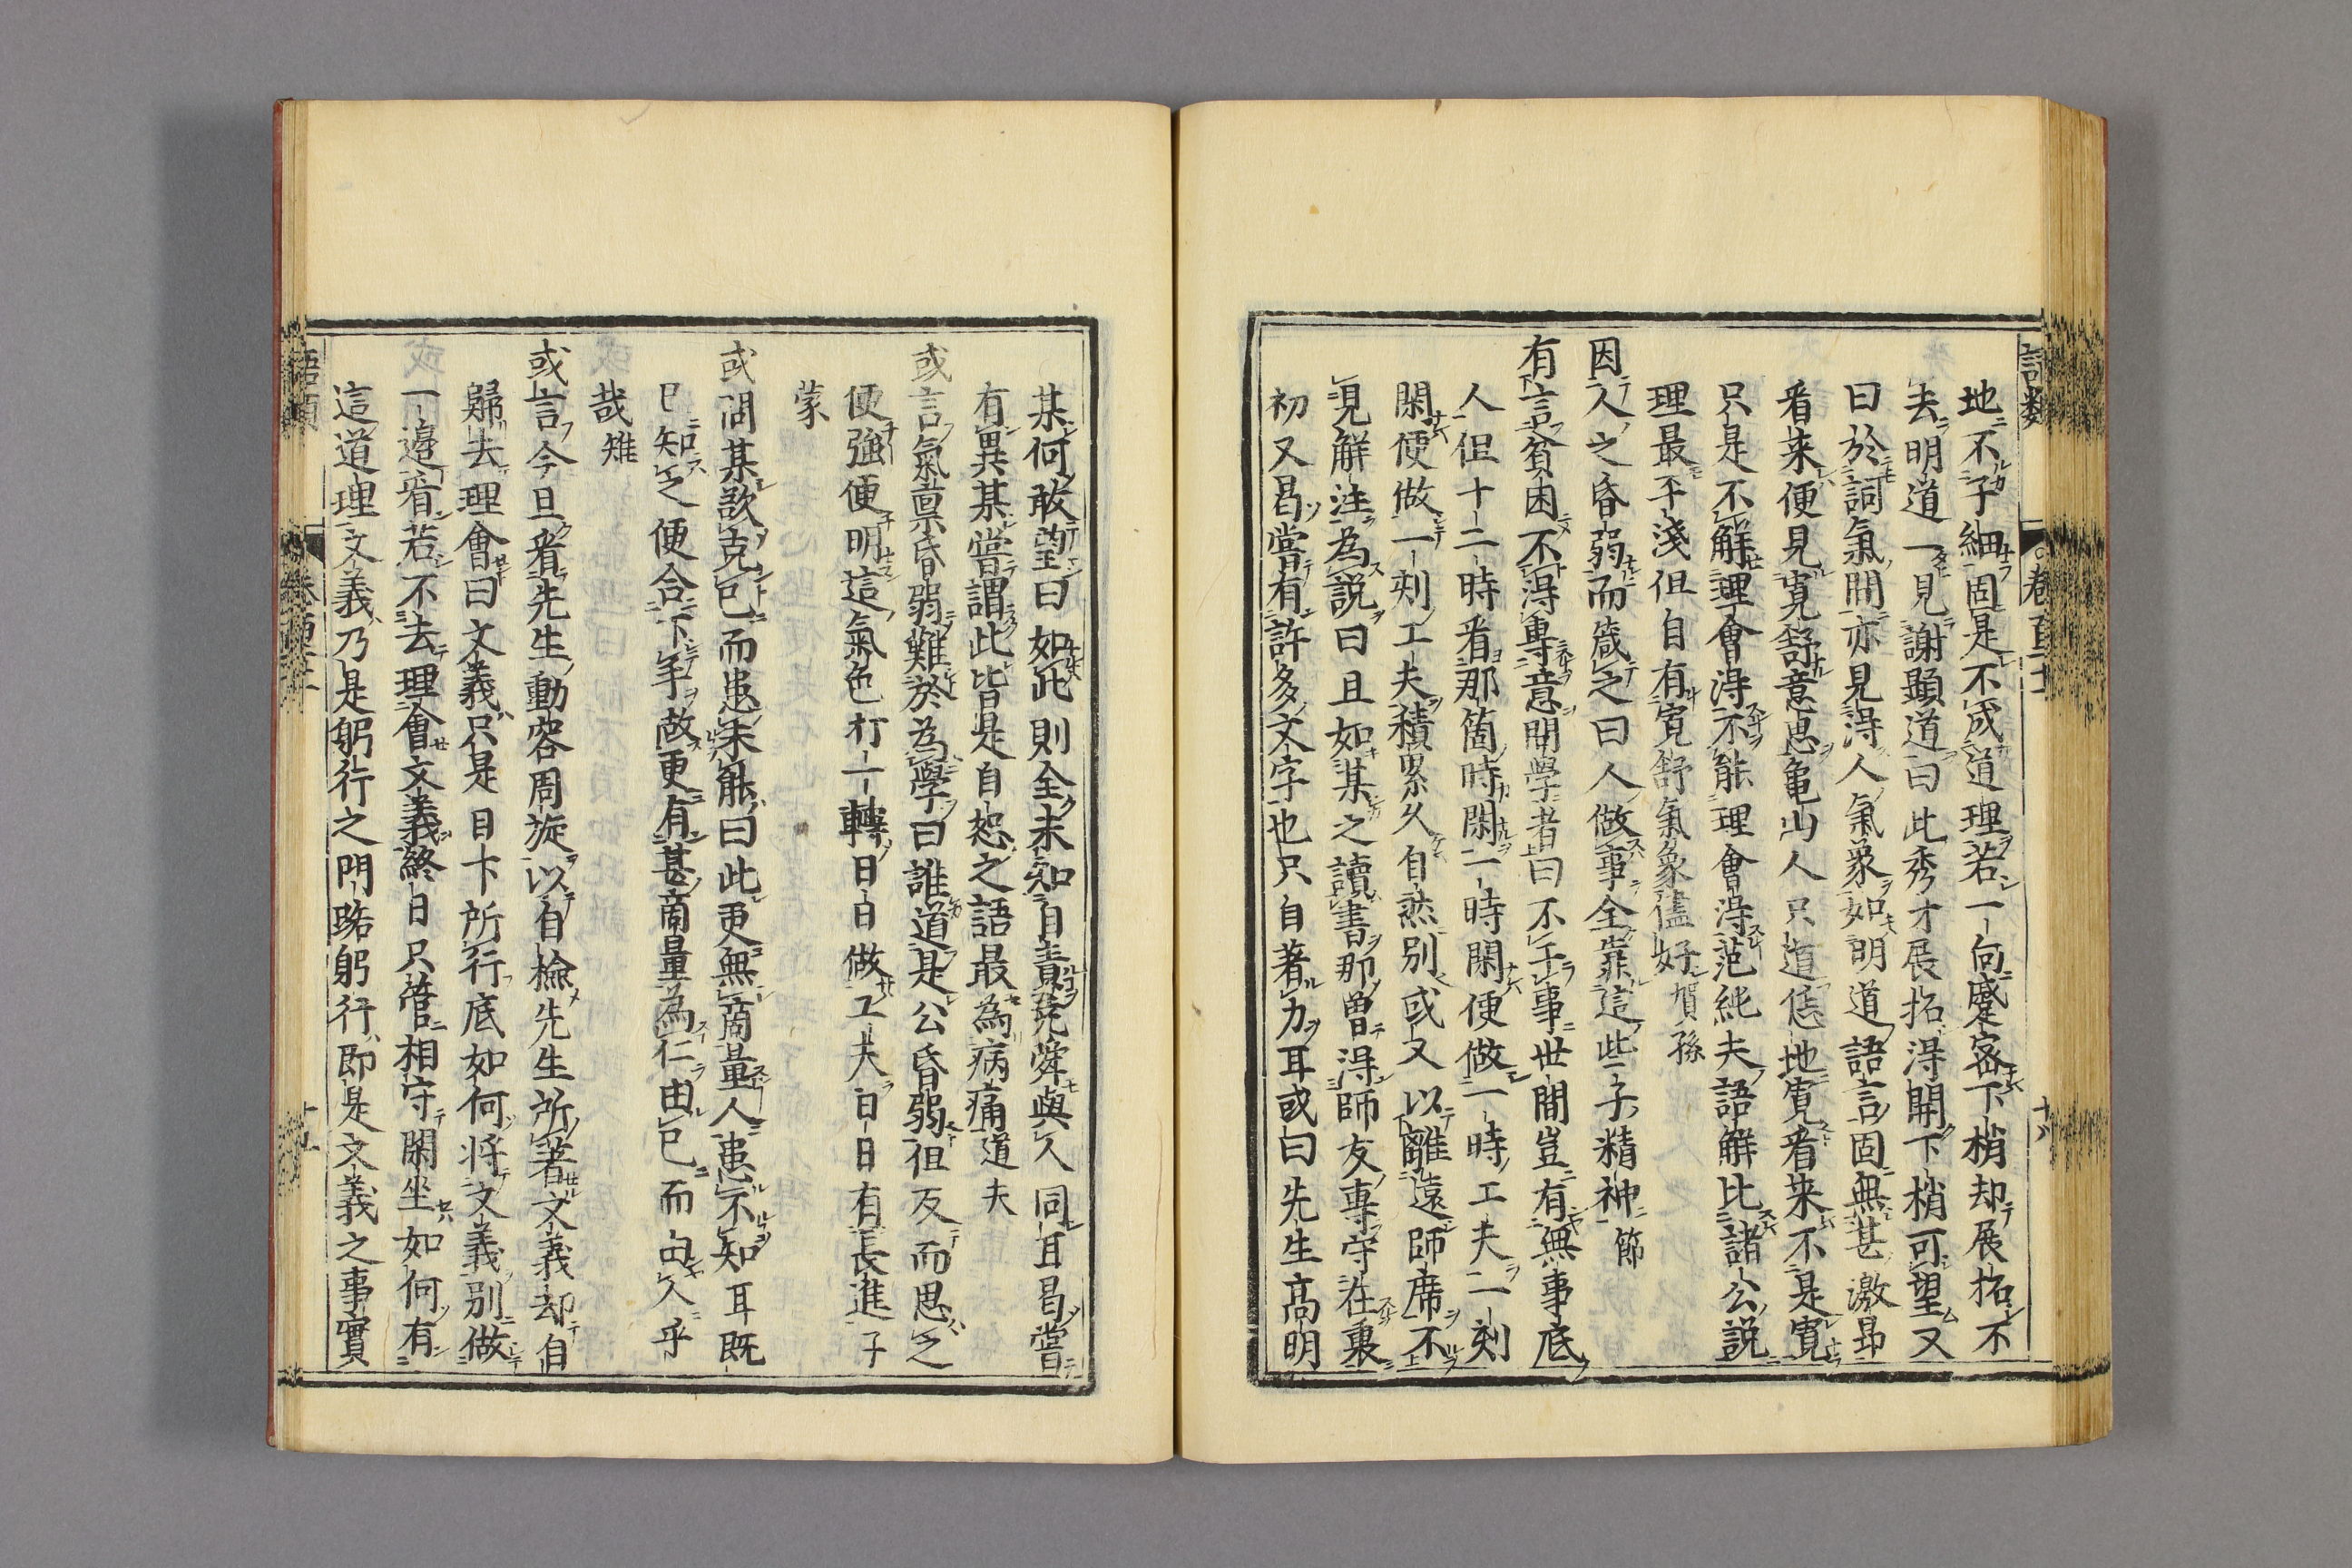 語類
卷百二十
十八
地不子細固是不成道理若一向蹙密下梢却展拓不
去明道一見謝顯道曰此秀才展拓得開下梢可望又
曰於詞氣間亦見得人氣象如明道語言固無甚激昂
看来便見寬舒意思龜山人只道恁地寬看来不是寬
只是不解理會得不能理會得范純夫語解比諸公説
理最平淺但自有寬舒氣象儘好賀孫
因人之昏弱而箴之曰人做事全靠這些子精神節
有言貧困不得專意問學者曰不干事世間豈有無事底
人但十二時看那箇時閑一時閑便做一時工夫一刻
閑便做一刻工夫積累久自然別或又以離遠師席不
見解注為説曰且如某之讀書那曾得師友專守在裏
初又曷嘗有許多文字也只自著力耳或曰先生高明
某何敢望曰如此則全未知自責堯舜與人同耳曷嘗
有異某嘗謂此皆是自恕之語最為病痛道夫
或言氣稟昏弱難於為學曰誰道是公昏弱但反而思之
便強便明這氣色打一轉日日做工夫日日有長進子
蒙
或問某欲克己而患未能曰此更無商量人患不知耳既
已知之便合下手做更有甚商量為仁由己而由人乎
哉雉
或言今旦看先生動容周旋以自檢先生所著文義却自
歸去理會曰文義只是目下所行底如何將文義別做
一邊看若不去理會文義終日只管相守閑坐如何有
這道理文義乃是躬行之門路躬行即是文義之事實
語類
卷百二十
十九